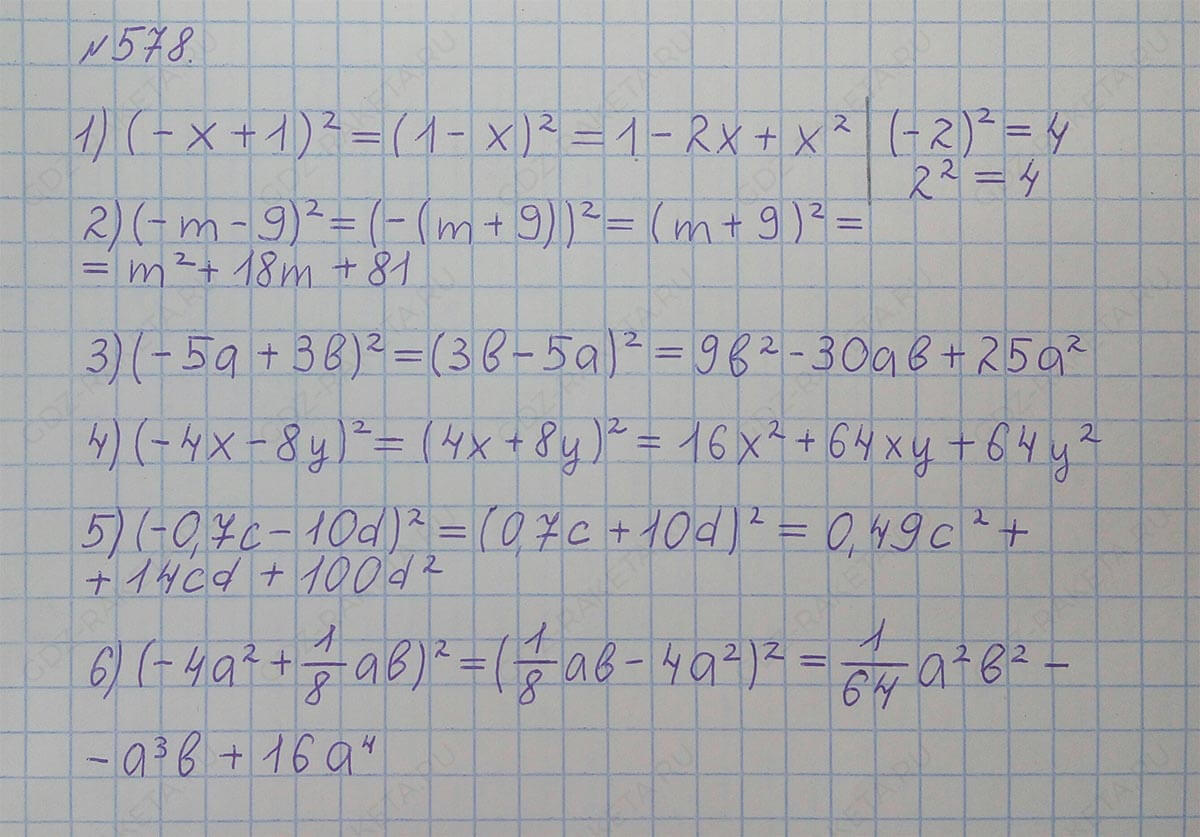 №578.
1) (-x+1)² = (1-x)² = 1-2x+x² | (-2)² = 4
2² = 4
2) (-m-9)² = (-(m+9))² = (m+9)² =
= m² + 18m + 81
3) (-5a+3в)² = (3в-5a)² = 9в² - 30aв + 25a²
4) (-4x-8y)² = (4x+8y)² = 16x² + 64xy + 64y²
5) (-0,7c-10d)² = (0,7c+10d)² = 0,49c² +
+ 14cd + 100d²
6) (-4a² + 1/8 aв)² = (1/8 aв - 4a²)² = 1/64 a²в² -
- a³в + 16a⁴
GDZ-RAKETA.RU